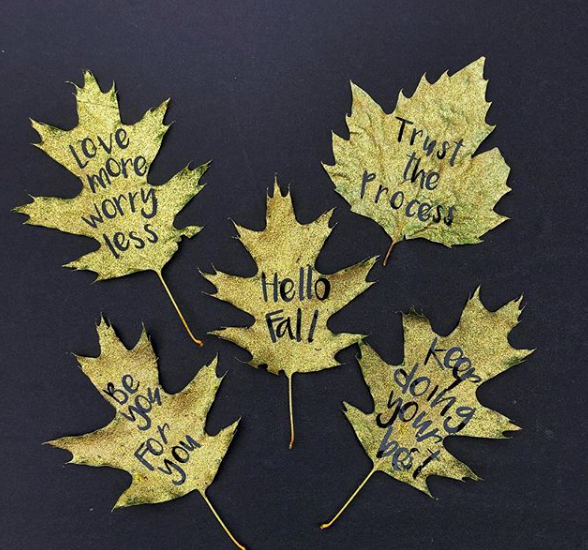 Love
more
worry
less
Trust
the
process
Hello
Fall
Be
you
For
you
Keep
doing
your
best